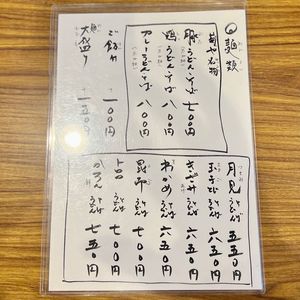 麺類
名物
豚うどん・そば 七〇〇円
鴨うどん・そば 八〇〇円
カレーうどん・そば 八〇〇円
ご飯 一〇〇円
大盛り 一五〇円
月見 うどん そば 五五〇円
玉子とじ うどん そば 六五〇円
きざみ うどん そば 六五〇円
わかめ うどん そば 六五〇円
昆布 うどん そば 七〇〇円
トロロ うどん そば 七〇〇円
うどん そば 七五〇円